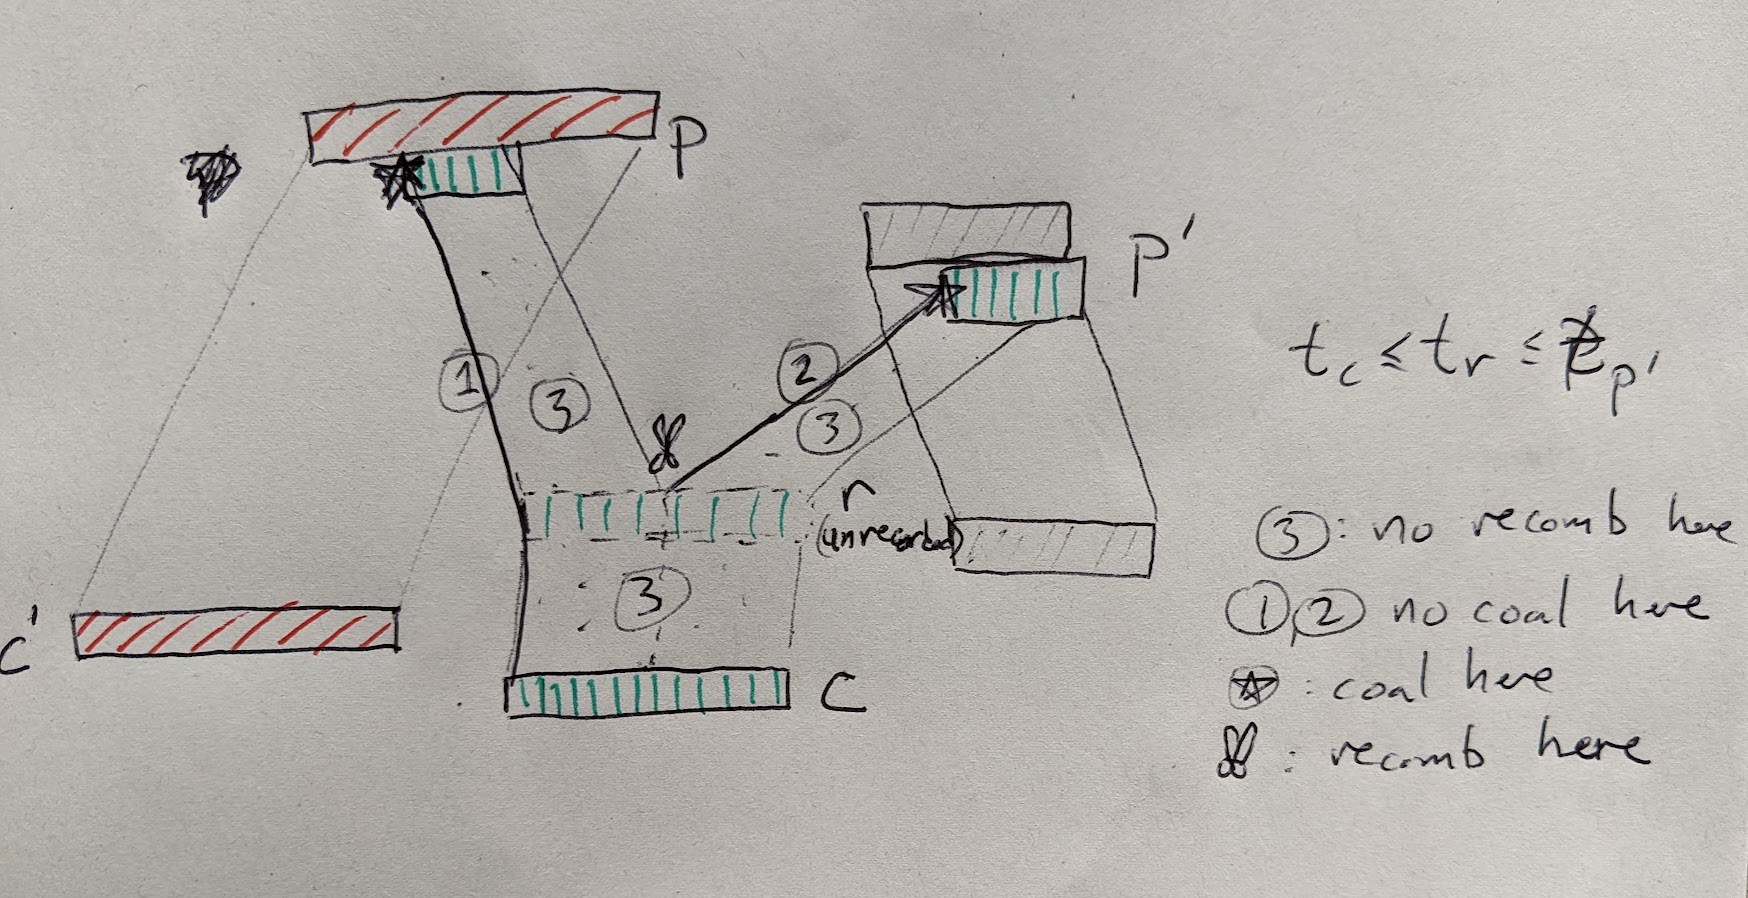 P
P'
1
2
3
3
t_c ≤ t_r ≤ t_p'
r
(unrecorded)
3
C'
C
3: no recomb here
1,2 no coal here
: coal here
: recomb here